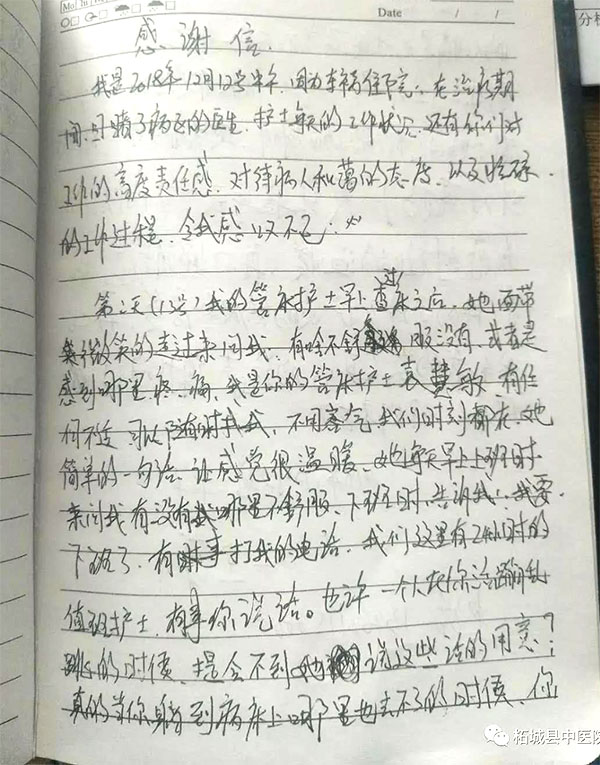 Mo Tu
Date / /
分析
感谢信
我是2018年12月12号中午,因为车祸住院。在治疗期
间,目睹了病区的医生,护士每天的工作状况,还有你们对
工作的高度责任感,对待病人和蔼的态度,以及忙碌
的工作过程,令我感
第二天(13号)我的管床护士早上查过床之后,她面带
微笑的走过来问我,有啥不舒服没有,或者是
感到哪里疼、痛,我是你的管床护士袁慧敏,有任
何不适可以随时找我,不用客气我们时刻都在,她
简单的一句话,让感觉很温暖,她每天早上上班时
来问我有没有哪里不舒服,下班时,告诉我:我要
下班了,有事打我的电话,我们这里有24小时的
值班护士,有事你说话。也许一个人在你
的时候,提会不到她说这些话的用意?
真的当你躺到病床上哪里也去不了的时候,你
柘城县中医院